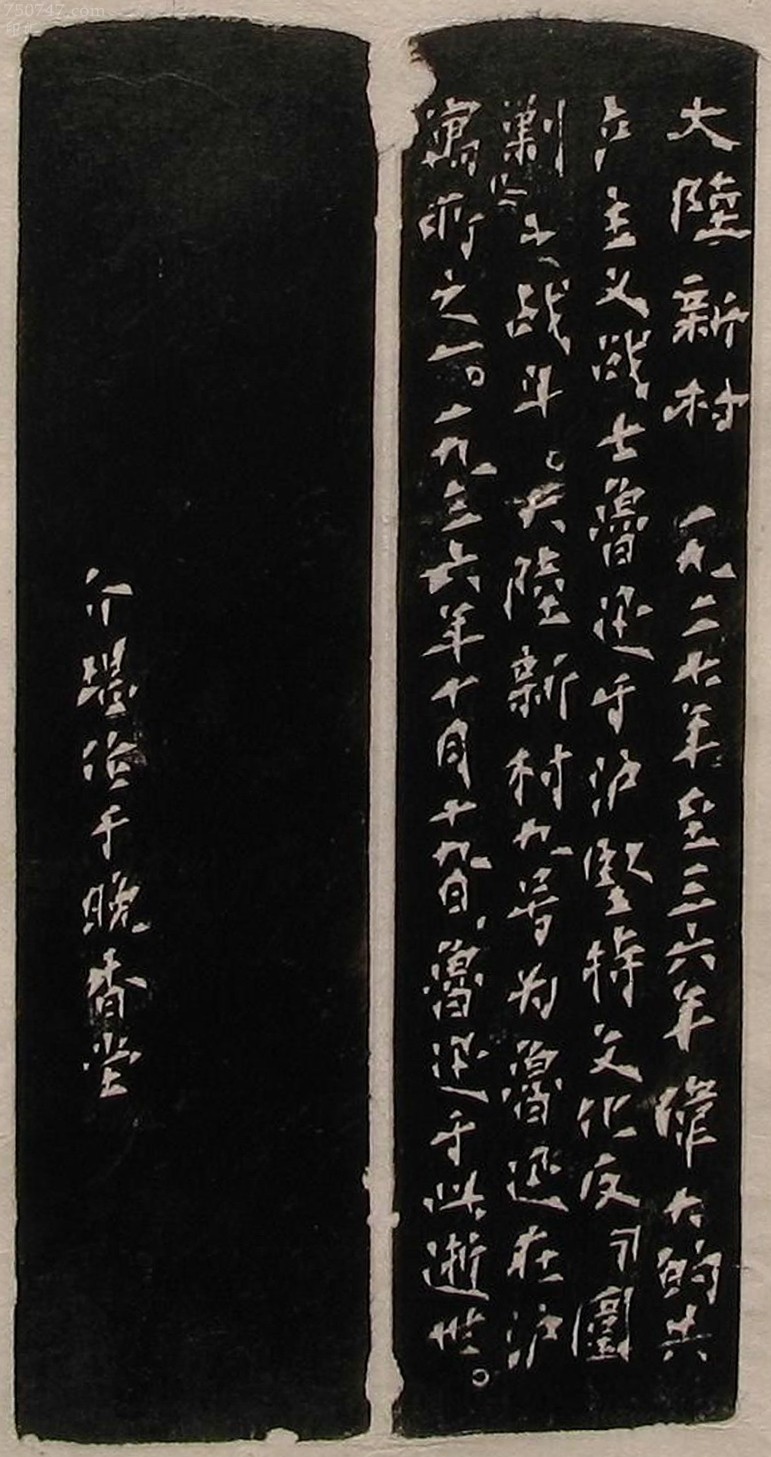 750747.com
大陸新村 一九二七年至三六年偉大的共
产主义战士魯迅于沪堅持文化反「圍
剿」之战斗。大陸新村九号为魯迅在沪
寓所之一。一九三六年十月十九日，魯迅于此逝世。
介堪作于晚香堂